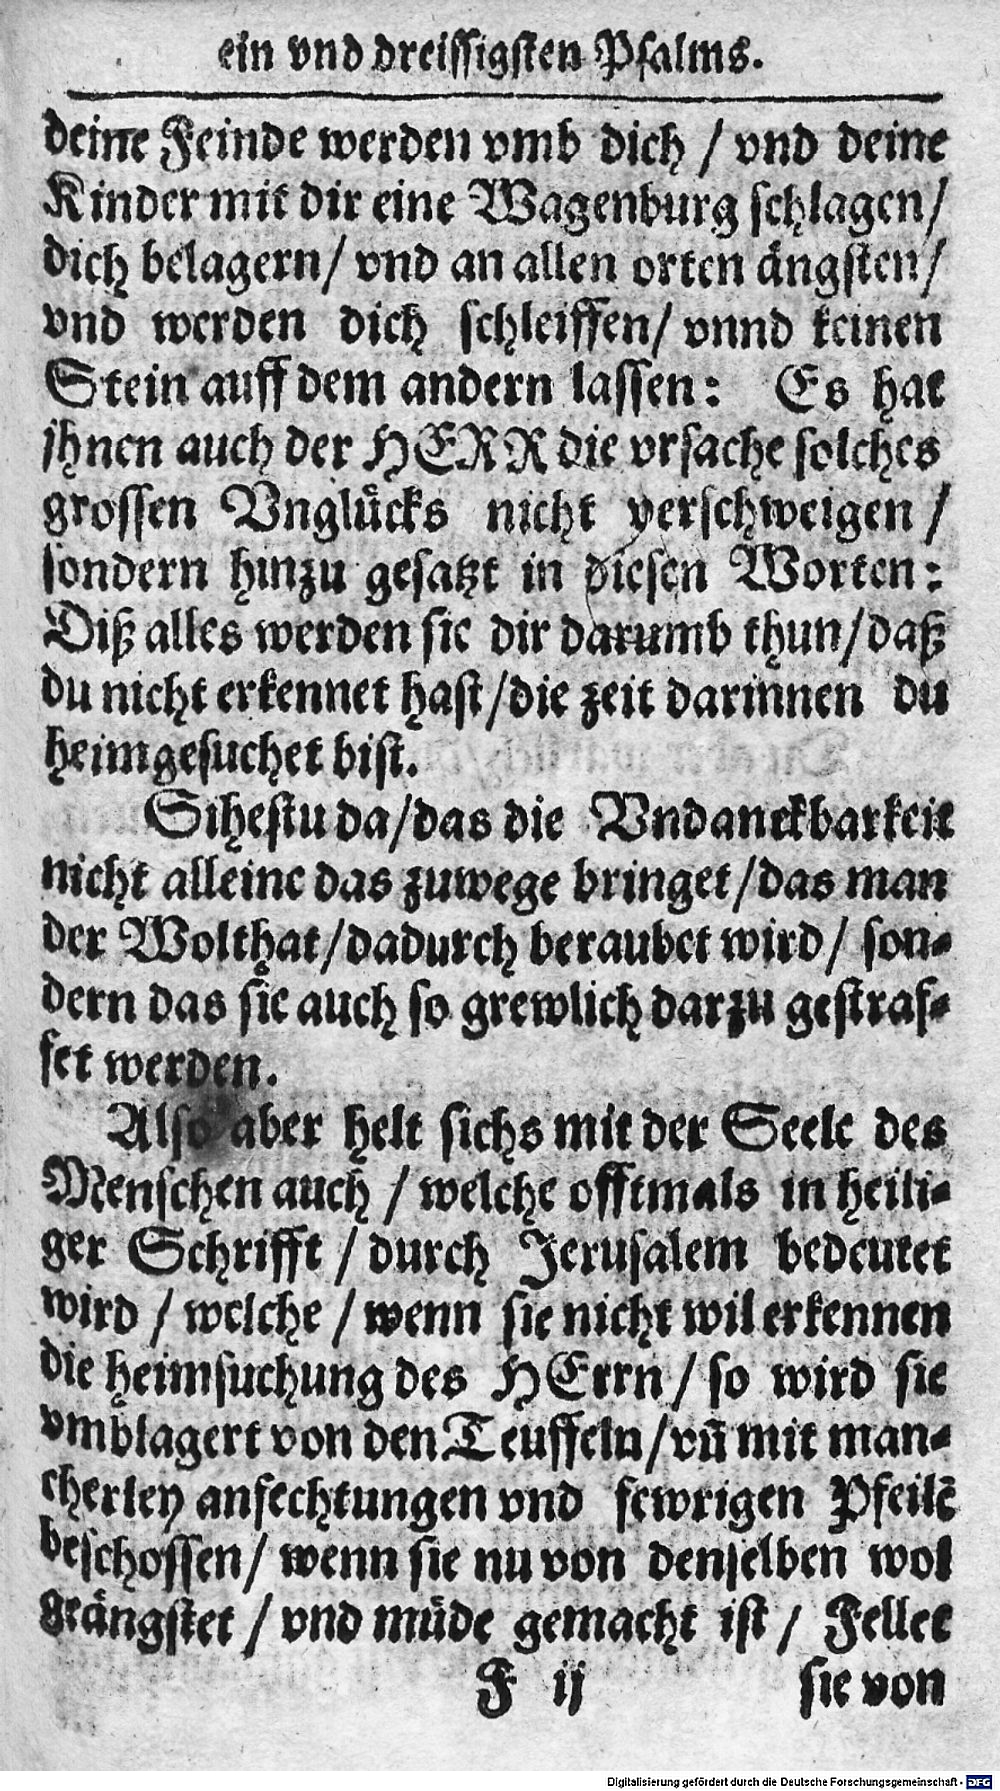 ein vnd dreissigsten Psalms.
deine Feinde werden vmb dich / vnd deine
Kinder mit dir eine Wagenburg schlagen/
dich belagern/ vnd an allen orten ängsten/
vnd werden dich schleiffen/ vnnd keinen
Stein auff dem andern lassen: Es hat
jhnen auch der HERR die vrsache solches
grossen Vnglücks nicht verschweigen /
sondern hinzu gesatzt in diesen Worten:
Diß alles werden sie dir darumb thun/daß
du nicht erkennet hast/die zeit darinnen du
heimgesuchet bist.
Sihestu da/das die Vndanckbarkeit
nicht alleine das zuwege bringet/das man
der Wolthat/dadurch beraubet wird/ son-
dern das sie auch so grewlich darzu gestraf-
fet werden.
Also aber helt sichs mit der Seele des
Menschen auch / welche offtmals in heili-
ger Schrifft / durch Jerusalem bedeutet
wird / welche / wenn sie nicht wil erkennen
die heimsuchung des HErrn / so wird sie
vmblagert von den Teuffeln/vn̄ mit man-
cherley anfechtungen vnd fewrigen Pfeilē
beschossen/ wenn sie nu von denselben wol
geängstet / vnd müde gemacht ist / Fellet
F ij sie von
Digitalisierung gefördert durch die Deutsche Forschungsgemeinschaft - DFG